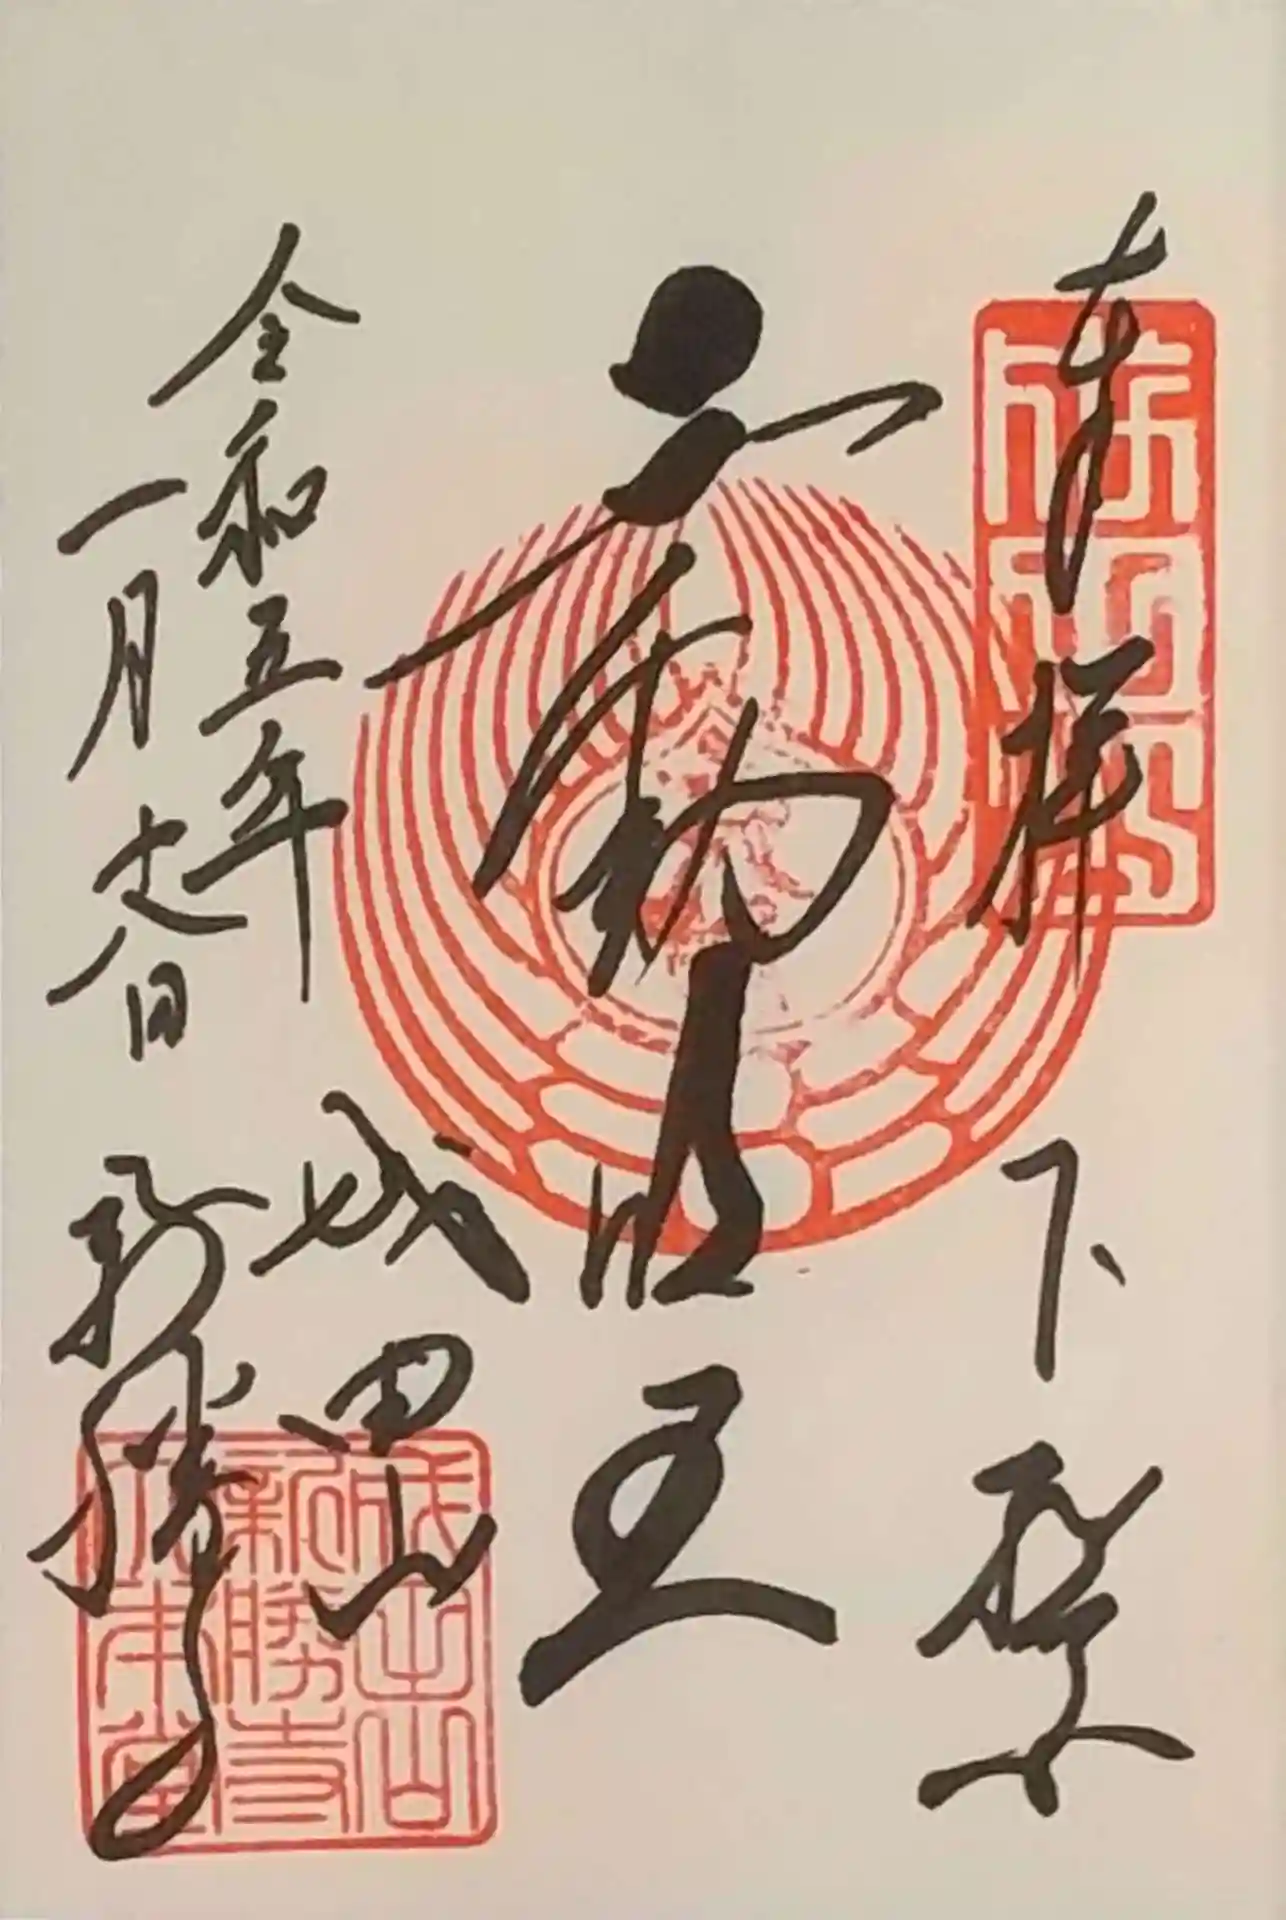 奉拝 下総
不動明王
令和五年
一月廿八日
成田山
新勝寺
成田山
新勝寺
大本堂